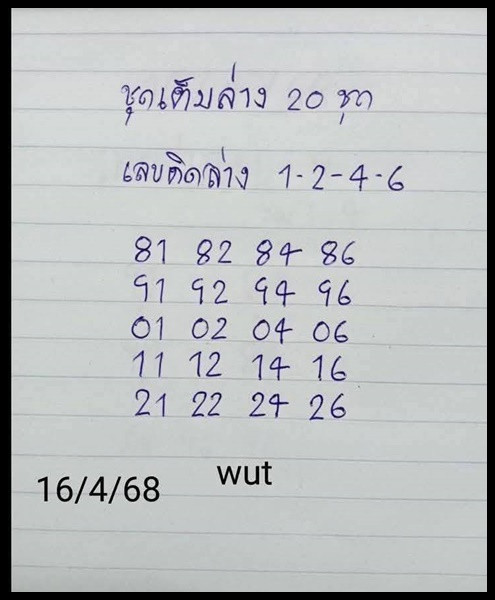 ชุดเต็มล่าง 20 ชุด
เลขคิดล่าง 1-2-4-6
81 82 84 86
91 92 94 96
01 02 04 06
11 12 14 16
21 22 24 26
wut
16/4/68